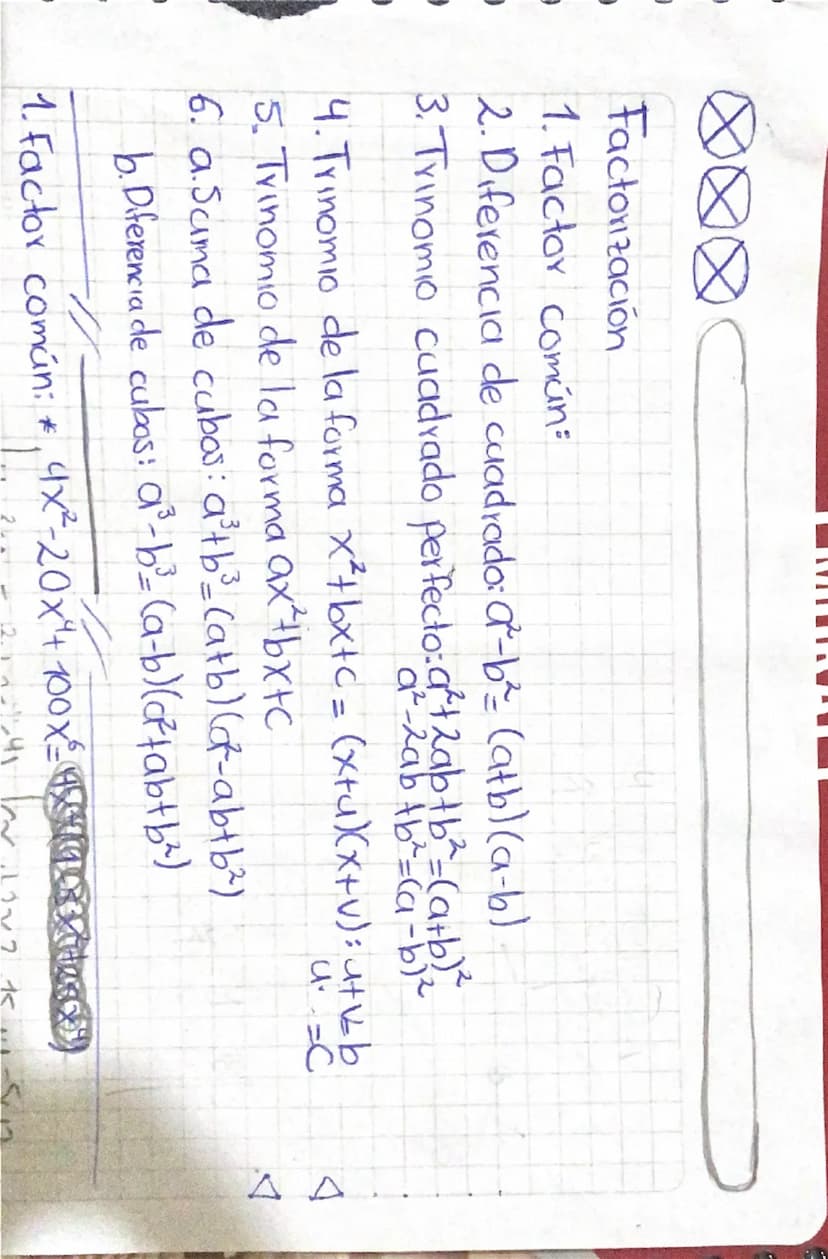 Factorización
1. Factor común:
2. Diferencia de cuadrado: a²-b²= (a+b)(a-b)
3. Trinomio cuadrado perfecto: a²+2ab+b²=(a+b)²
a²-2ab+b²=(a-b)²
4. Trinomio de la forma x²+bx+c = (x+u)(x+v): u+v=b
u· =c
5. Trinomio de la forma ax²+bx+c
6. a. Suma de cubos: a³+b³=(a+b)(a²-ab+b²)
b. Diferencia de cubos: a³-b³=(a-b)(a²+ab+b²)
1. Factor común: * 4x²-20x⁴+100x⁶=